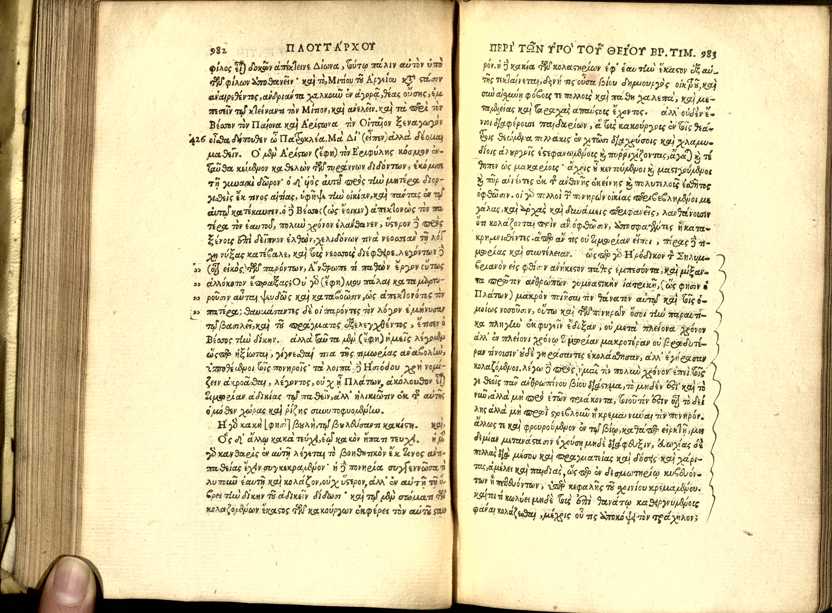 982 ΠΛΟΥΤΑΡΧΟΥ
φίλος εἶναι δοκῶν ἀπέκτεινε Δίωνα, τούτῳ πάλιν αὐτὸν ὑπὸ
τῶν φίλων ἀποθανεῖν· καὶ τὸ, Μιτίου τοῦ Ἀργείου κατὰ στάσιν
ἀναιρεθέντος, ἀνδριάντα χαλκοῦν ἐν ἀγορᾷ, θέας οὔσης, ἐμ-
πεσεῖν τῷ κτείναντι τὸν Μίτιον, καὶ ἀνελεῖν. καὶ τὰ περὶ τὸν
Βέσσον τὸν Παίονα καὶ Ἀρίστωνα τὸν Οἰταῖον ξεναγὸν
426 οἶσθα δήπουθεν ὦ Πατροκλέα. Μὰ Δί' (εἶπεν) ἀλλὰ δέομαι
μαθεῖν. Ὁ μὲν Ἀρίστων (ἔφη) τὸν Ἐριφύλης κόσμον ἐν-
ταῦθα κείμενον καθελὼν τῶν τυράννων διδόντων, ἐκόμισε
τῇ γυναικὶ δῶρον· ὁ δ' υἱὸς αὐτοῦ πρὸς τὴν μητέρα διορ-
γισθεὶς ἔκ τινος αἰτίας, ὑφῆψε τὴν οἰκίαν, καὶ πάντας ἐν τῷ
αὐτῷ κατέκαυσεν. ὁ δὲ Βέσσος (ὡς ἔοικεν) ἀπεκτονὼς τὸν πα-
τέρα τὸν ἑαυτοῦ, πολὺν χρόνον ἐλάνθανεν, ὕστερον δὲ πρὸς
ξένους ἐπὶ δεῖπνον ἐλθὼν, χελιδόνων τινὰ νεοσσιὰν τῇ λόγ-
χῃ νύξας κατέβαλε, καὶ τοὺς νεοσσοὺς διέφθειρε. λεγόντων δὲ
(οἷον εἰκὸς) τῶν παρόντων, Ἄνθρωπε τί παθὼν ἔργον οὕτως
ἀλλόκοτον ἔπραξας; Οὐ γὰρ (ἔφη) μου πάλαι καταμαρτυ-
ροῦσιν αὗται ψευδῶς καὶ καταβοῶσιν, ὡς ἀπεκτονότος τὸν
πατέρα; θαυμάσαντες δὲ οἱ παρόντες τὸν λόγον ἐμήνυσαν
τῷ βασιλεῖ, καὶ τοῦ πράγματος ἐξελεγχθέντος, ἔτισεν ὁ
Βέσσος τὴν δίκην. ἀλλὰ ταῦτα μὲν (ἔφη) ἡμεῖς λέγομεν
ὥσπερ ἠξίωται, γίγνεσθαί τινα τῆς τιμωρίας ἀναβολὴν,
ὑποθέμενοι τοῖς πονηροῖς· τὰ λοιπὰ δὲ Ἡσιόδου χρὴ νομί-
ζειν ἀκροᾶσθαι, λέγοντος, οὐχ ᾗ Πλάτων, ἀκόλουθον εἶναι
τιμωρίαν ἀδικίας τῷ παθεῖν, ἀλλ' ἡλικιῶτιν ἐκ τῆς αὐτῆς
ὁμόθεν χώρας καὶ ῥίζης συνυποφυομένην.
Ἡ γὰρ κακὴ [φησὶ] βουλὴ τῷ βουλεύσαντι κακίστη. καὶ,
Ὃς δ' ἄλλῳ κακὰ τεύχει, ἑῷ κακὸν ἥπατι τεύχει. ἡ μὲν
γὰρ κανθαρὶς ἐν αὑτῇ λέγεται τὸ βοηθητικὸν ἔκ τινος ἀντι-
παθείας ἔχειν συγκεκραμένον· ἡ δὲ πονηρία συγγεννῶσα τὸ
λυποῦν ἑαυτῇ καὶ κολάζον, οὐχ ὕστερον, ἀλλ' ἐν αὐτῇ τῇ ὕ-
βρει τὴν δίκην τοῦ ἀδικεῖν δίδωσι· καὶ τῷ μὲν σώματι τῶν
κολαζομένων ἕκαστος τῶν κακούργων ἐκφέρει τὸν αὑτοῦ σταυ
ΠΕΡΙ ΤΩΝ ΥΠΟ ΤΟΥ ΘΕΙΟΥ ΒΡ. ΤΙΜ. 983
ρόν. ἡ δὲ κακία τῶν κολαστηρίων ἐφ' ἑαυτὴν ἕκαστον ἐξ αὑ-
τῆς τεκταίνεται, δεινή τις οὖσα βίου δημιουργὸς οἰκτροῦ, καὶ
σὺν αἰσχύνῃ φόβους τε πολλοὺς καὶ πάθη χαλεπὰ, καὶ με-
ταμελείας καὶ ταραχὰς ἀπαύστους ἔχοντος. ἀλλ' οὐδὲν ἔ-
νιοι διαφέρουσι παιδαρίων, ἃ τοὺς κακούργους ἐν τοῖς θεά-
τροις θεώμενα πολλάκις ἐν χιτῶσι διαχρύσοις καὶ χλαμυ-
δίοις ἁλουργοῖς ἐστεφανωμένους καὶ πυρριχίζοντας, ἄγαται καὶ τέ-
θηπεν ὡς μακαρίους· ἄχρις οὗ κεντούμενοι καὶ μαστιγούμενοι
καὶ πῦρ ἀνιέντες ἐκ τῆς ἀνθινῆς ἐκείνης καὶ πολυτελοῦς ἐσθῆτος
ὀφθῶσιν. οἱ γὰρ πολλοὶ τῶν πονηρῶν οἰκίας περιβεβλημένοι με-
γάλας, καὶ ἀρχὰς καὶ δυνάμεις περιφανεῖς, λανθάνουσιν
ὅτι κολάζονται, πρὶν ἂν ὀφθῶσιν, ἀποσφαγέντες ἢ κατα-
κρημνισθέντες. ἅπερ ἄν τις οὐ τιμωρίαν εἴποι, πέρας δὲ τι-
μωρίας καὶ συντέλειαν. ὥσπερ γὰρ Ἡρόδικον τὸν Σηλυμ-
βριανὸν εἰς φθίσιν ἀνήκεστον πάθος ἐμπεσόντα, καὶ μίξαν-
τα πρῶτον ἀνθρώπων γυμναστικὴν ἰατρικῇ, (ὥς φησιν ὁ
Πλάτων) μακρὸν ποιῆσαι τὸν θάνατον αὑτῷ καὶ τοῖς ὁ-
μοίως νοσοῦσιν, οὕτω καὶ τῶν πονηρῶν ὅσοι τὴν παραυτί-
κα πληγὴν ἐκφυγεῖν ἔδοξαν, οὐ μετὰ πλείονα χρόνον
ἀλλ' ἐν πλείονι χρόνῳ τιμωρίαν μακροτέραν οὐ βραδυτέ-
ραν τίνουσιν· οὐδὲ γηράσαντες ἐκολάσθησαν, ἀλλ' ἐγήρασαν
κολαζόμενοι. λέγω δὲ πρὸς ἡμᾶς τὸν πολὺν χρόνον· ἐπεὶ τοῖς
γε θεοῖς πᾶν ἀνθρωπίνου βίου διάστημα, τὸ μηδέν ἐστι· καὶ τὸ
νῦν, ἀλλὰ μὴ πρὸ ἐτῶν τριάκοντα, τοιοῦτόν ἐστιν οἷον τὸ δεί-
λης ἀλλὰ μὴ πρωὶ στρεβλοῦν ἢ κρεμαννύναι τὸν πονηρόν.
ἄλλως τε καὶ φρουρούμενον ἐν τῷ βίῳ, καθάπερ εἱρκτῇ, μη-
δεμίαν μετανάστασιν ἐχούσῃ μηδὲ διάφευξιν, εὐωχίας δὲ
πολλὰς μέσου καὶ πραγματείας καὶ δόσεις καὶ χάρι-
τας, ἀμέλει καὶ παιδιὰς, ὥσπερ ἐν δεσμωτηρίῳ κυβευόν-
των ἢ πεττευόντων, ὑπὲρ κεφαλῆς τοῦ σχοινίου κρεμαμένου.
καίτοι τί κωλύει μηδὲ τοὺς ἐπὶ θανάτῳ καθειργνυμένους
φάναι κολάζεσθαι, μέχρις οὗ τις ἀποκόψῃ τὸν τράχηλον;